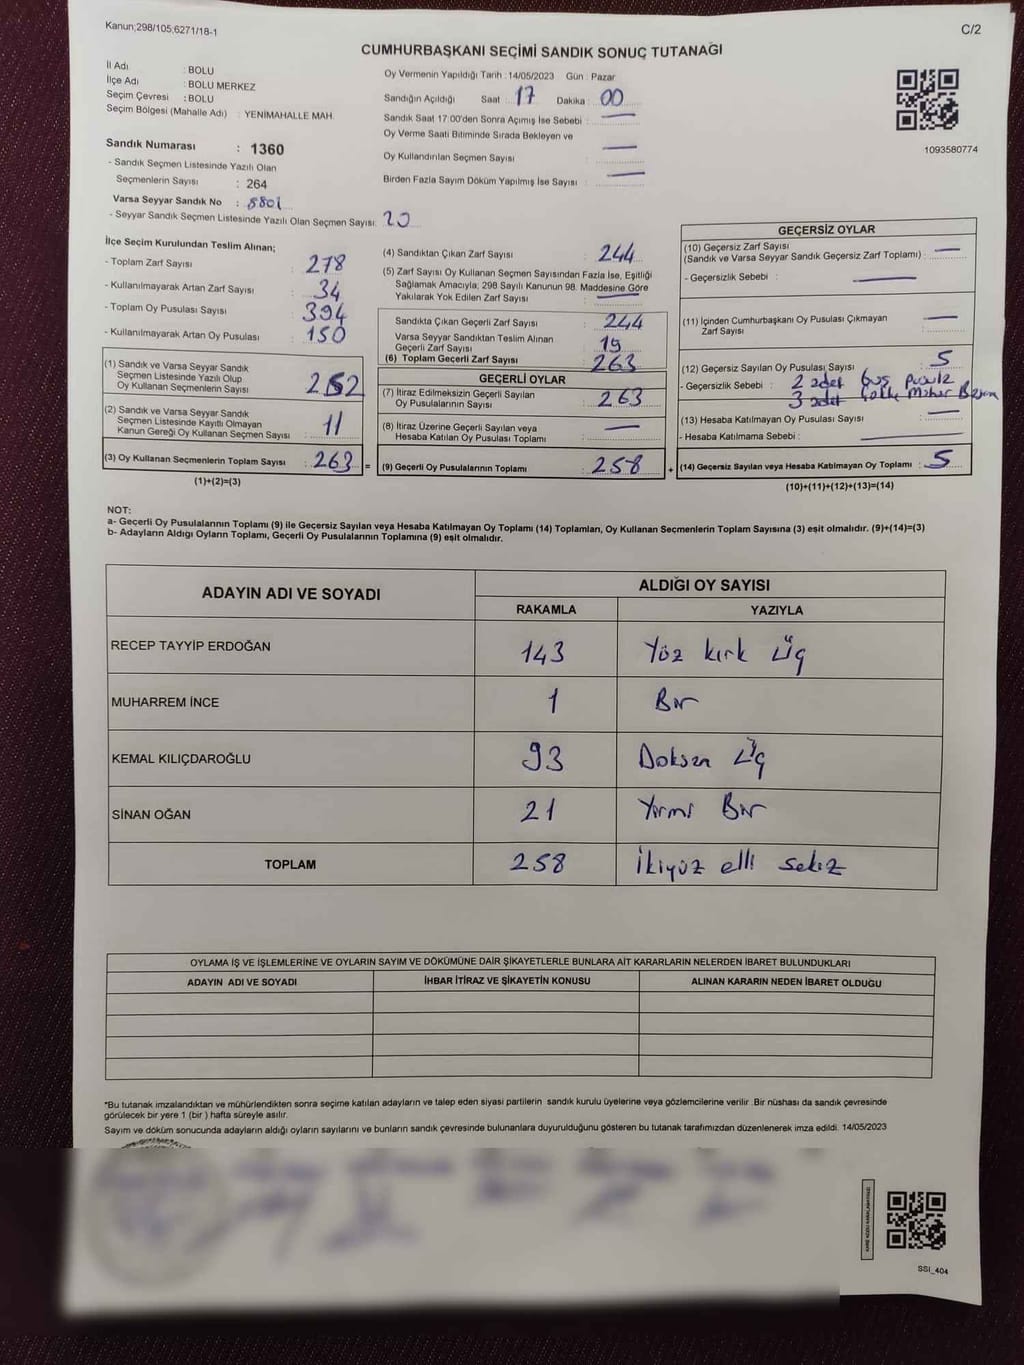 Kanun;298/105;6271/18-1
C/2
CUMHURBAŞKANI SEÇİMİ SANDIK SONUÇ TUTANAĞI
İl Adı : BOLU
İlçe Adı : BOLU MERKEZ
Seçim Çevresi : BOLU
Seçim Bölgesi (Mahalle Adı) : YENİMAHALLE MAH.
Sandık Numarası : 1360
- Sandık Seçmen Listesinde Yazılı Olan
Seçmenlerin Sayısı : 264
Varsa Seyyar Sandık No : 8801
- Seyyar Sandık Seçmen Listesinde Yazılı Olan Seçmen Sayısı: 20
Oy Vermenin Yapıldığı Tarih : 14/05/2023 Gün : Pazar
Sandığın Açıldığı Saat : 17 Dakika : 00
Sandık Saat 17:00'den Sonra Açımış İse Sebebi :
Oy Verme Saati Bitiminde Sırada Bekleyen ve
Oy Kullandırılan Seçmen Sayısı :
Birden Fazla Sayım Döküm Yapılmış İse Sayısı :
1093580774
İlçe Seçim Kurulundan Teslim Alınan;
- Toplam Zarf Sayısı : 278
- Kullanılmayarak Artan Zarf Sayısı : 34
- Toplam Oy Pusulası Sayısı : 394
- Kullanılmayarak Artan Oy Pusulası : 150
(1) Sandık ve Varsa Seyyar Sandık
Seçmen Listesinde Yazılı Olup
Oy Kullanan Seçmenlerin Sayısı : 252
(2) Sandık ve Varsa Seyyar Sandık
Seçmen Listesinde Kayıtlı Olmayan
Kanun Gereği Oy Kullanan Seçmen Sayısı : 11
(3) Oy Kullanan Seçmenlerin Toplam Sayısı : 263 =
(1)+(2)=(3)
(4) Sandıktan Çıkan Zarf Sayısı : 244
(5) Zarf Sayısı Oy Kullanan Seçmen Sayısından Fazla İse, Eşitliği
Sağlamak Amacıyla, 298 Sayılı Kanunun 98. Maddesine Göre
Yakılarak Yok Edilen Zarf Sayısı :
Sandıkta Çıkan Geçerli Zarf Sayısı : 244
Varsa Seyyar Sandıktan Teslim Alınan
Geçerli Zarf Sayısı : 19
(6) Toplam Geçerli Zarf Sayısı : 263
GEÇERLİ OYLAR
(7) İtiraz Edilmeksizin Geçerli Sayılan
Oy Pusulalarının Sayısı : 263
(8) İtiraz Üzerine Geçerli Sayılan veya
Hesaba Katılan Oy Pusulası Toplamı :
(9) Geçerli Oy Pusulalarının Toplamı : 258 +
GEÇERSİZ OYLAR
(10) Geçersiz Zarf Sayısı
(Sandık ve Varsa Seyyar Sandık Geçersiz Zarf Toplamı) :
- Geçersizlik Sebebi :
(11) İçinden Cumhurbaşkanı Oy Pusulası Çıkmayan
Zarf Sayısı :
(12) Geçersiz Sayılan Oy Pusulası Sayısı : 5
- Geçersizlik Sebebi : 2 adet Boş Pusula
3 adet Çoklu Mühür Basım
(13) Hesaba Katılmayan Oy Pusulası Sayısı :
- Hesaba Katılmama Sebebi :
(14) Geçersiz Sayılan veya Hesaba Katılmayan Oy Toplamı : 5
(10)+(11)+(12)+(13)=(14)
NOT:
a- Geçerli Oy Pusulalarının Toplamı (9) ile Geçersiz Sayılan veya Hesaba Katılmayan Oy Toplamı (14) Toplamları, Oy Kullanan Seçmenlerin Toplam Sayısına (3) eşit olmalıdır. (9)+(14)=(3)
b- Adayların Aldığı Oyların Toplamı, Geçerli Oy Pusulalarının Toplamına (9) eşit olmalıdır.
ADAYIN ADI VE SOYADI
ALDIĞI OY SAYISI
RAKAMLA YAZIYLA
RECEP TAYYİP ERDOĞAN 143 Yüz kırk üç
MUHARREM İNCE 1 Bir
KEMAL KILIÇDAROĞLU 93 Doksan Üç
SİNAN OĞAN 21 Yirmi Bir
TOPLAM 258 İkiyüz elli sekiz
OYLAMA İŞ VE İŞLEMLERİNE VE OYLARIN SAYIM VE DÖKÜMÜNE DAİR ŞİKAYETLERLE BUNLARA AİT KARARLARIN NELERDEN İBARET BULUNDUKLARI
ADAYIN ADI VE SOYADI İHBAR İTİRAZ VE ŞİKAYETİN KONUSU ALINAN KARARIN NEDEN İBARET OLDUĞU
*Bu tutanak imzalandıktan ve mühürlendikten sonra seçime katılan adayların ve talep eden siyasi partilerin sandık kurulu üyelerine veya gözlemcilerine verilir .Bir nüshası da sandık çevresinde
görülecek bir yere 1 (bir ) hafta süreyle asılır.
Sayım ve döküm sonucunda adayların aldığı oyların sayılarını ve bunların sandık çevresinde bulunanlara duyurulduğunu gösteren bu tutanak tarafımızdan düzenlenerek imza edildi. 14/05/2023
SSI_404